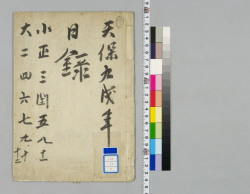 天保九戌年
日録
小正三閏五八十一
大二四六七九十
十二